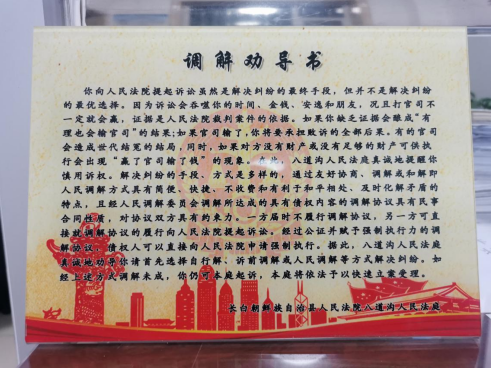 调解劝导书
你向人民法院提起诉讼虽然是解决纠纷的最终手段，但并不是解决纠纷
的最优选择。因为诉讼会吞噬你的时间、金钱、安逸和朋友，况且打官司不
一定就会赢，证据是人民法院裁判案件的依据。如果你缺乏证据会酿成“有
理也会输官司”的结果；如果官司输了，你将要承担败诉的全部后果。有的官司
会造成世代结冤的结局，同时，如果对方没有财产或没有足够的财产可供执
行会出现“赢了官司输了钱”的现象。在此，八道沟人民法庭真诚地提醒你
慎用诉权。解决纠纷的手段、方式是多样的，通过友好协商、调解或和解即
人民调解方式具有简便、快捷、不收费和有利于和平相处、及时化解矛盾的
特点，且经人民调解委员会调解所达成的具有债权内容的调解协议具有民事
合同性质，对协议双方具有约束力。一方届时不履行调解协议，另一方可直
接就调解协议的履行向人民法院提起诉讼；经过公证并赋予强制执行力的调
解协议，债权人可以直接向人民法院申请强制执行。据此，八道沟人民法庭
真诚地劝导你请首先选择自行解、诉前调解或人民调解等方式解决纠纷。如
经上述方式调解未成，你仍可来庭起诉，本庭将依法予以快速立案受理。
长白朝鲜族自治县人民法院八道沟人民法庭